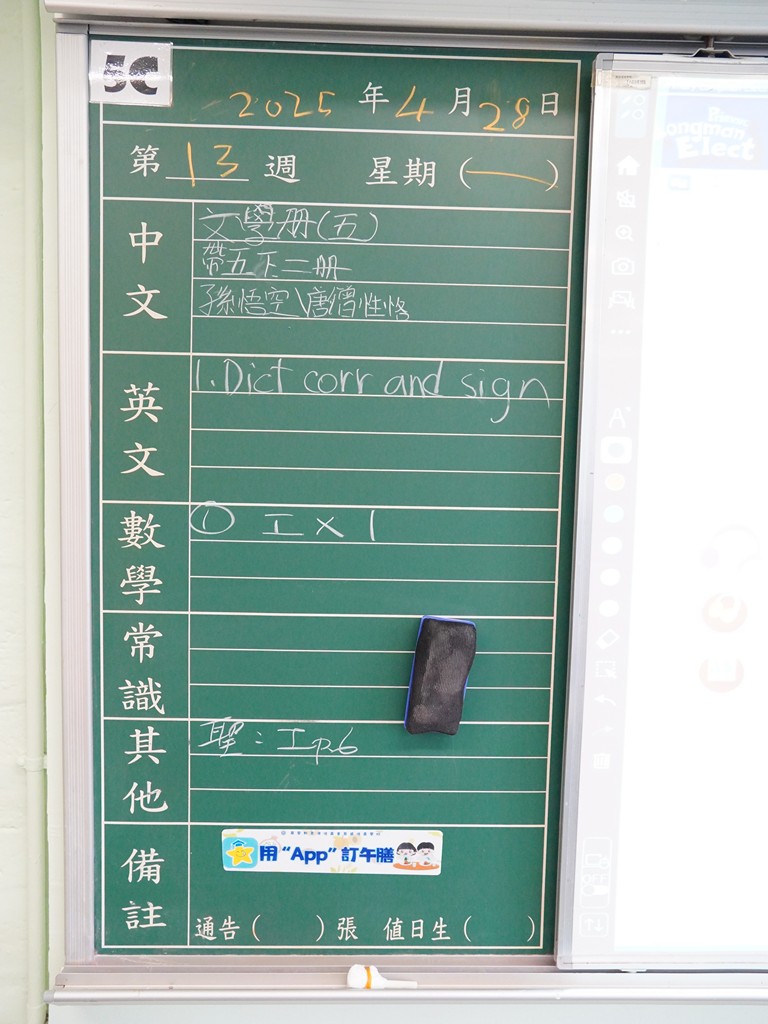 5C
2025 年 4 月 28 日
第 13 週 星期 (一)
中文
文學册(五)
帶五下二册
孫悟空\唐僧性格
英文
1. Dict corr and sign
數學
① 工 X 1
常識
其他
聖：工 p.6
備註
用 “App” 訂午膳
通告 ( ) 張 值日生 ( )
Longman
Elect
OFF